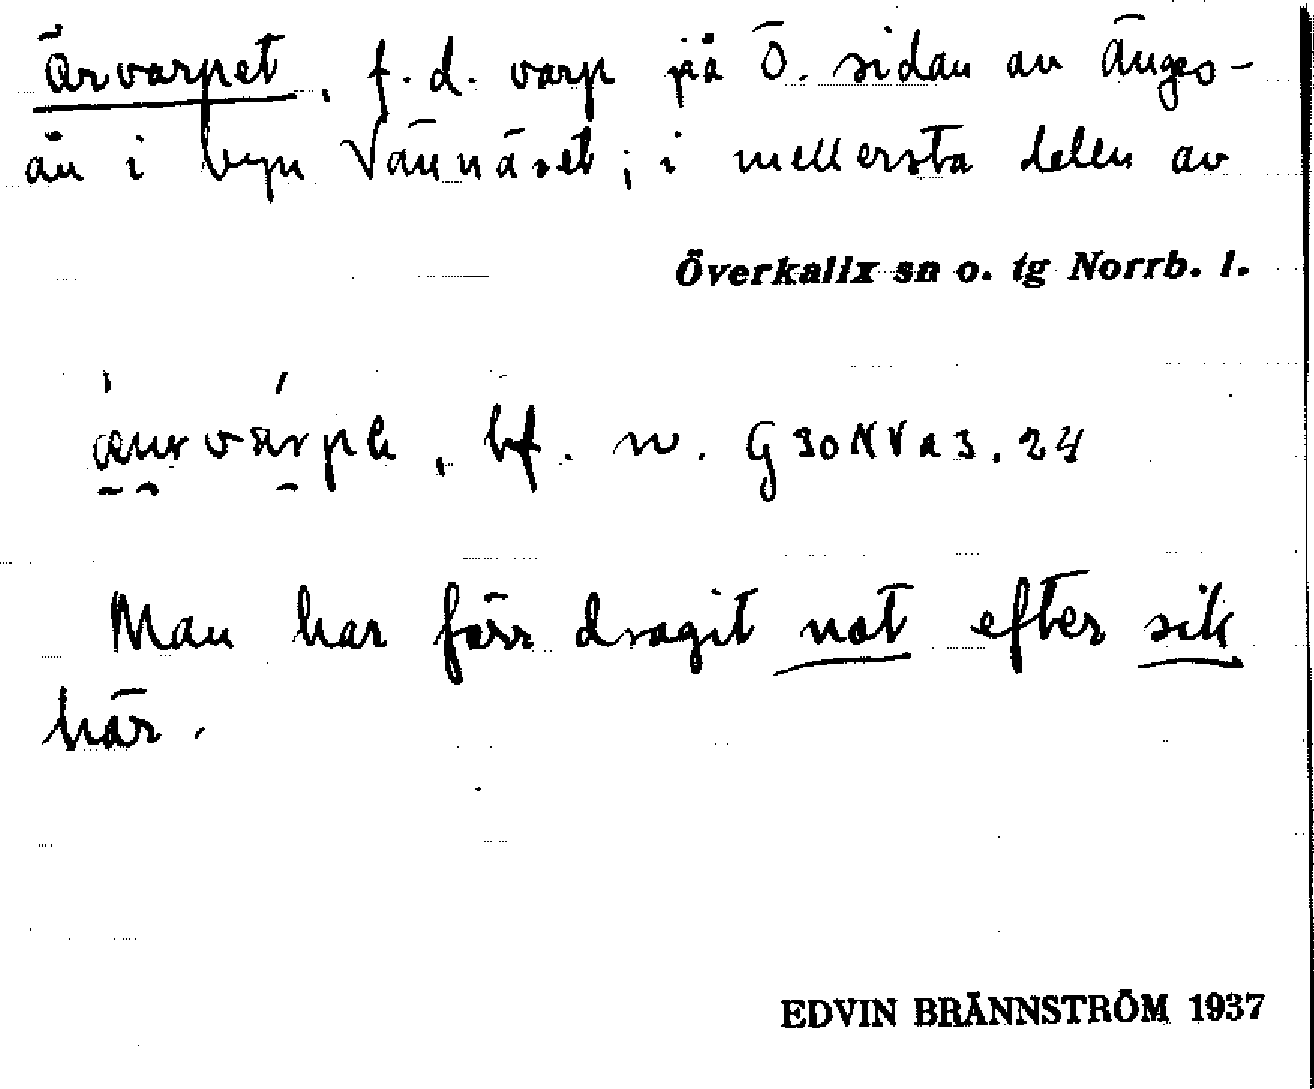 Ärvarpet, f.d. varp på Ö. sidan av Änges-
ån i byn Vännäset; i mellersta delen av
Överkalix sn o. tg Norrb. l.
bf. n. G30NVa3.24
Man har förr dragit not efter sik
här.
EDVIN BRÄNNSTRÖM 1937